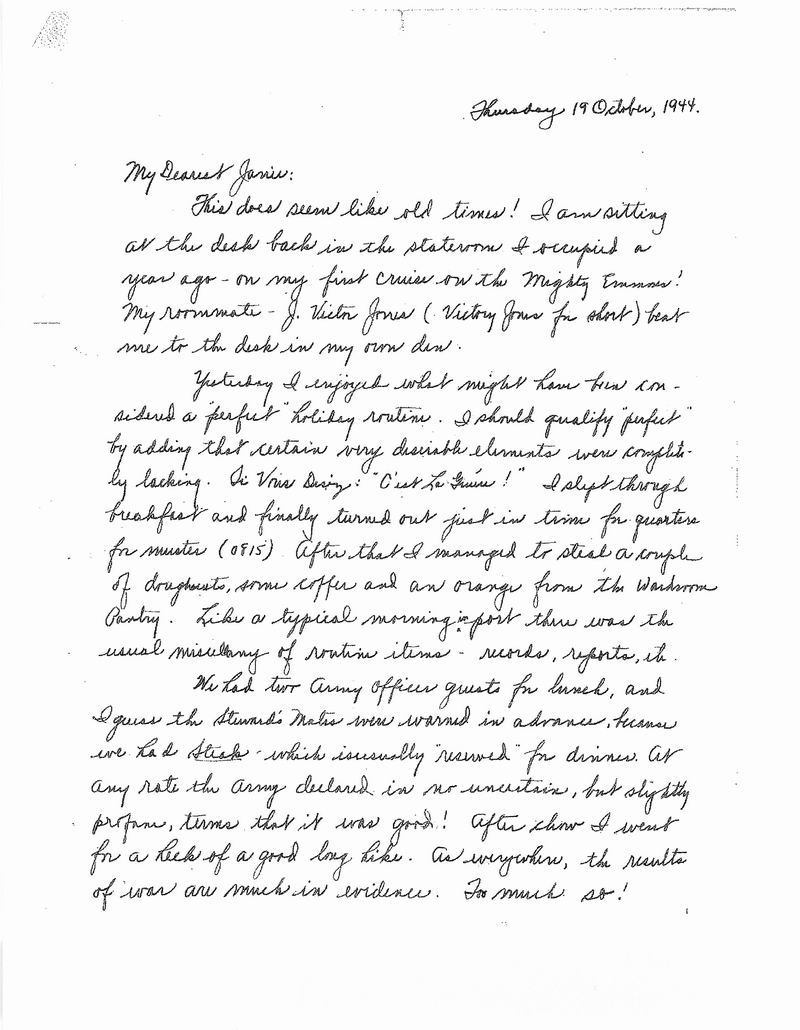 Thursday 19 October, 1944.
My Dearest Janie:
This does seem like old times! I am sitting
at the desk back in the stateroom I occupied a
year ago - on my first cruise on the Mighty Emmons!
My roommate - J. Victor Jones (Victory Jones for short) beat
me to the desk in my own den.
Yesterday I enjoyed what might have been con-
sidered a "perfect" holiday routine. I should qualify "perfect"
by adding that certain very desirable elements were complete-
ly lacking. Vous : "C'est La Guerre!" I slept through
breakfast and finally turned out just in time for quarters
for muster (0815) After that I managed to steal a couple
of doughnuts, some coffee and an orange from the Wardroom
Pantry. Like a typical morning in port there was the
usual miscellany of routine items - records, reports, etc.
We had two Army Officer guests for lunch, and
I guess the Steward's Mates were warned in advance, because
we had Steak - which is usually "reserved" for dinner. At
any rate the Army declared in no uncertain, but slightly
profane, terms that it was good! After chow I went
for a heck of a good long hike. As everywhere, the results
of war are much in evidence. Too much so!